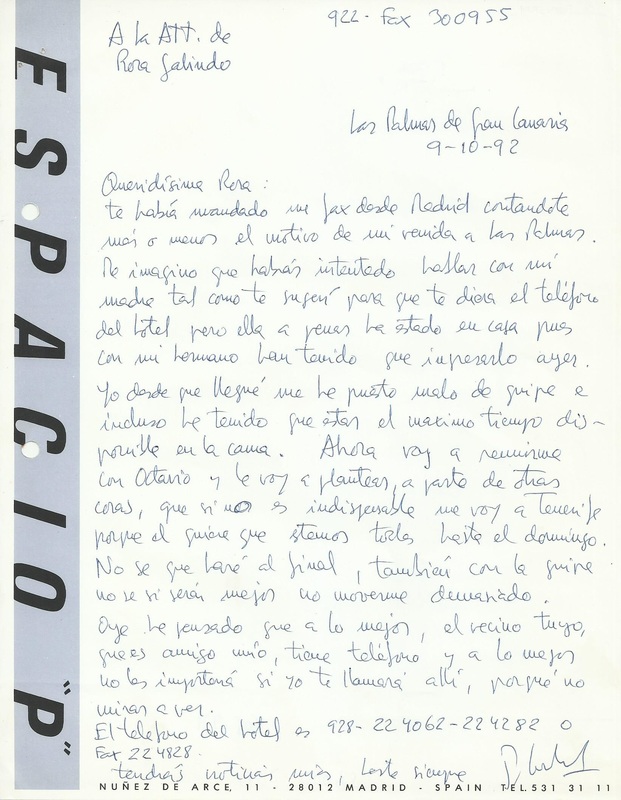 922 - Fax 300955
A la Att. de
Rosa Galindo
Las Palmas de Gran Canaria
9-10-92
Queridisima Rosa :
te había mandado un fax desde Madrid contandote
más o menos el motivo de mi venida a Las Palmas.
Me imagino que habrás intentado hablar con mi
madre tal como te sugerí para que te diera el teléfono
del hotel pero ella a penas ha estado en casa pues
con mi hermano han tenido que ingresarlo ayer.
Yo desde que llegué me he puesto malo de gripe e
incluso he tenido que estar el maximo tiempo dis-
ponible en la cama. Ahora voy a reunirme
con Octavio y le voy a plantear, a parte de otras
cosas, que si no es indispensable me voy a Tenerife
porque el quiere que estemos todos hasta el domingo.
No se que haré al final, también con la gripe
no se si será mejor no moverme demasiado.
Oye he pensado que a lo mejor, el vecino tuyo,
que es amigo mío, tiene teléfono y a lo mejor
no les importará si yo te llamara allí, porqué no
miras a ver.
El telefono del hotel es 928-224062-224282 o
Fax 224828.
tendrás noticias mías, hasta siempre
ESPACIO "P"
NUÑEZ DE ARCE, 11 - 28012 MADRID - SPAIN TEL. 531 31 11